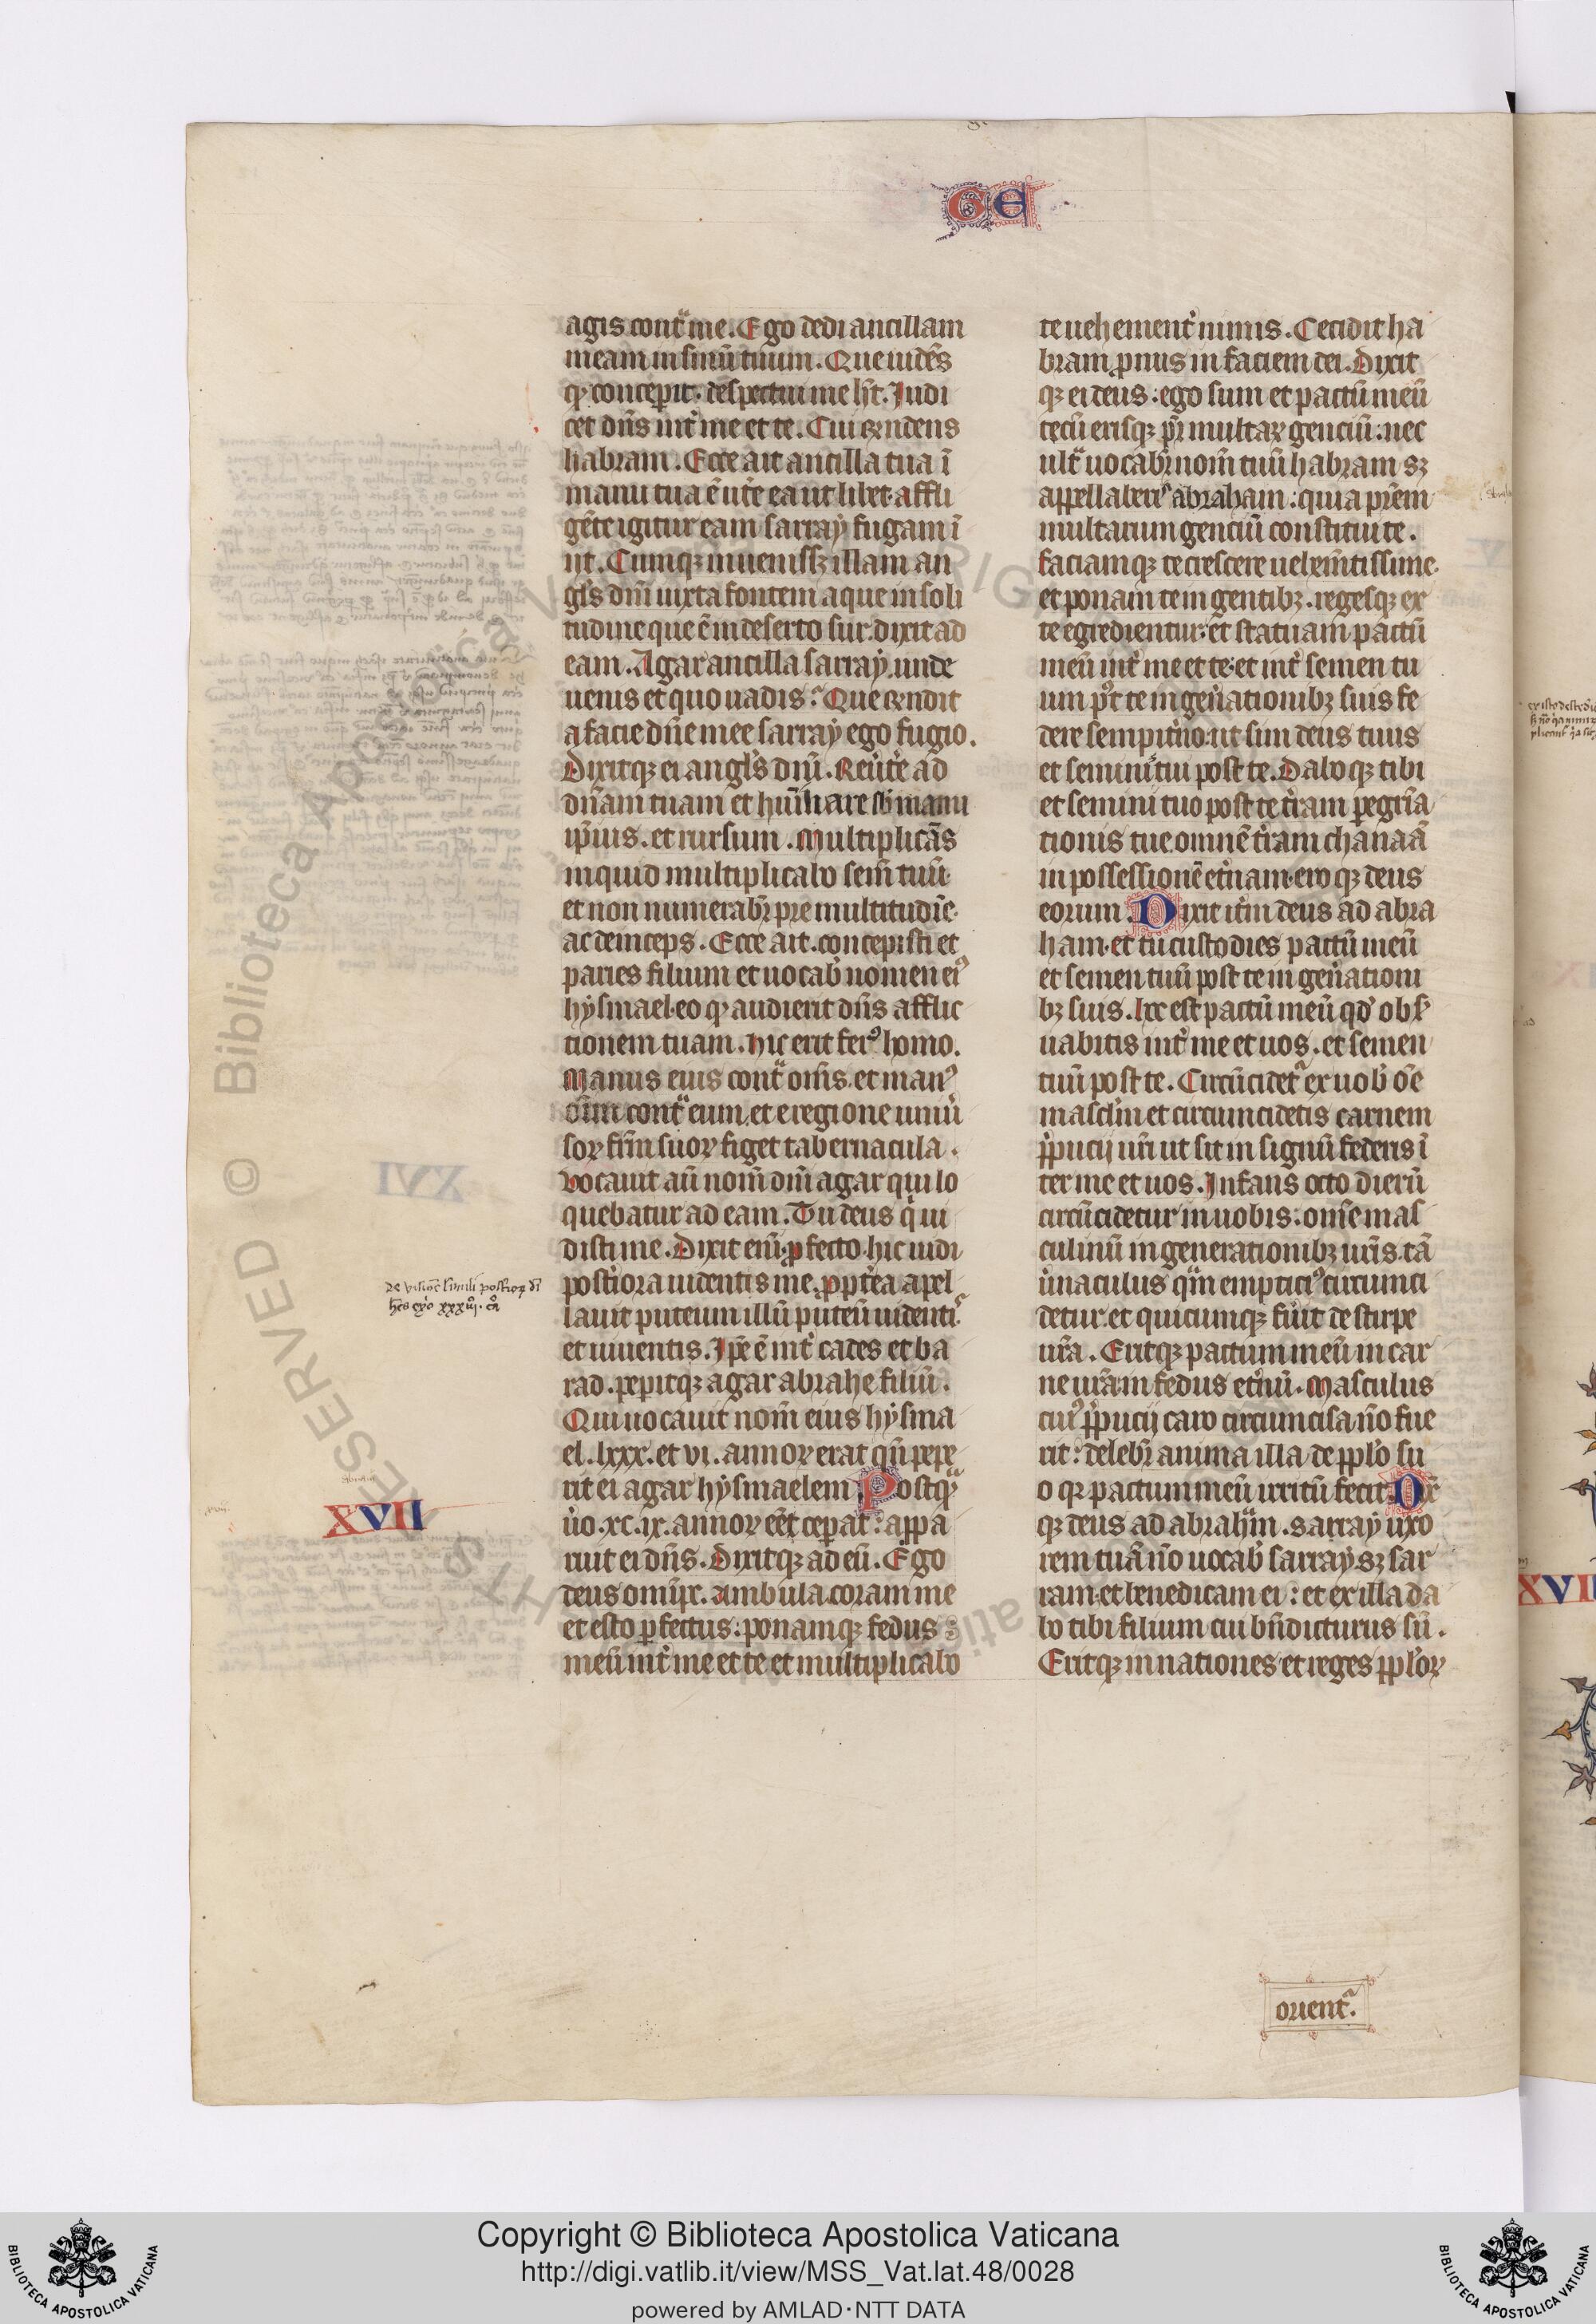 GE
agis contᵃ me. Ego dedi ancillam
meam in sinū tuum. Que uidēs
ꝙ conceperit. despectui me hꝫ. Judi
cet dn̄s int̕ me et te. Cui rn̄dens
habram. Ecce ait ancilla tua ī
manu tua ē ut̕e ea ut libet. affli
gēte igitur eam sarray fugam ī
ijt. Cumqꝫ inuenissꝫ illam an
gl̕s dn̄i iuxta fontem aque in soli
tudine que ē in deserto sur. dixit ad
eam. Agar ancilla sarray. unde
uenis et quo uadis? Que rn̄dit
a facie dn̄e mee sarray ego fugio.
Dixitqꝫ ei angl̕s dn̄i. Reu̕te ad
dn̄am tuam et hūiliare sb̕ manu
ip̄ius. et rursum. Multiplicās
inquid multiplicabo sem̄ tuū
et non numerabr̄ pre multitudīe.
ac deinceps. Ecce ait. concepisti et
paries filium et uocab̕ nomen ei⁹
hysmael. eo ꝙ audierit dn̄s afflic
tionem tuam. hic erit fer⁹ homo.
Manus eius contᵃ om̄s. et man⁹
oīm contᵃ eum. et e regione uniu̕
soꝝ frm̄ suoꝝ figet tabernacula.
Vocauit aū nom̄ dn̄i agar qui lo
quebatur ad eam. Tu deus q̕ ui
disti me. Dixit enī. ꝓfecto hic uidi
post̕iora uidentis me. ꝓpt̕ea apel
lauit puteum illū puteū uidenti⁹
et uiuentis. Ip̄e ē int̕ cades et ba
rad. peperitqꝫ agar abrahe filiū.
Qui uocauit nom̄ eius hysma
el. lxxx. et vi. annoꝝ erat qn̄ pepe
rit ei agar hysmaelem. Postqᵃ
u̕o .xc.ix. annoꝝ eēt ceperat: appa
ruit ei dn̄s. Dixitqꝫ ad eū. Ego
deus omip̄r. ambula coram me
et esto ꝑfectus: ponamqꝫ fedus
meū int̕ me et te et multiplicabo
de visiōe simili posterioꝝ dī
hēs exo xxxiij. c̄
XVII
te uehement̕ nimis. Cecidit ha
bram ꝓnus in faciem dei. Dixit
qꝫ ei deus: ego sum et pactū meū
tecū erisqꝫ pr̄ multaꝝ genciū: nec
ult̕ uocabr̄ nom̄ tuū habram sꝫ
appellabere abraham: quia pr̄em
multarum genciū constitui te.
faciamqꝫ te crescere uehem̄tissime.
et ponam te in gentibꝫ. regesqꝫ ex
te egredientur: et statuam pactū
meū int̕ me et te: et int̕ semen tu
um p̄t te in gen̄ationibꝫ suis fe
dere sempit̕no: ut sim deus tuus
et seminis tui post te. Daboqꝫ tibi
et semini tuo post te t̕ram ꝑegrīa
tionis tue omnē t̕ram chanaā
in possessionē et̕nam. eroqꝫ deus
eorum. Dixit itm̄ deus ad abra
ham. et tu custodies pactū meū
et semen tuū post te in gen̄ationi
bꝫ suis. hoc est pactū meū qd̕ obs̕
uabitis int̕ me et uos. et semen
tuū post te. Circūcidet᷑ ex uob̕ oē
mascl̕in et circumcidetis carnem
p̄pucij ur̄i ut sit in signū federis ī
ter me et uos. Infans octo dierū
circūcidetur in uobis: omē mas
culinū in generationibꝫ ur̄is. tā
u̕naculus qᵃm empticiꝰ circumci
detur. et quicumqꝫ fu̕it de stirpe
ur̄a. Eritqꝫ pactum meū in car
ne ur̄a. in fedus et̕nū. Masculus
cuiꝰ p̄pucij caro circumcisa nō fue
rit: delebr̄ anima illa de ppl̕o su
o qꝛ pactum meū irritū fecit. Dix̄
qꝫ deus ad abrahᵃm. sarray uxo
rem tuā nō uocab̕ sarray. sꝫ sar
ram. et benedicam ei: et ex illa da
bo tibi filium cui bn̄dicturus sū.
Eritqꝫ in nationes et reges ppl̕oꝝ
orient᷑.
XVII
Copyright © Biblioteca Apostolica Vaticana
http://digi.vatlib.it/view/MSS_Vat.lat.48/0028
powered by AMLAD·NTT DATA
BIBLIOTECA APOSTOLICA VATICANA
BIBLIOTECA APOSTOLICA VATICANA